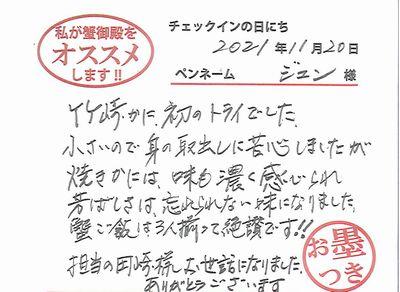 私が蟹御殿を
オススメ
します!!
チェックインの日にち
2021年11月20日
ペンネーム ジュン 様
竹崎かに、初のトライでした。
小さいので身の取出しに苦心しましたが
焼きかには、味も濃く感じられ
芳ばしさは、忘れられない味になりました。
蟹ご飯は3人揃って絶讃です!!
担当の田崎様、お世話になりました。
ありがとうございます
お墨
つき